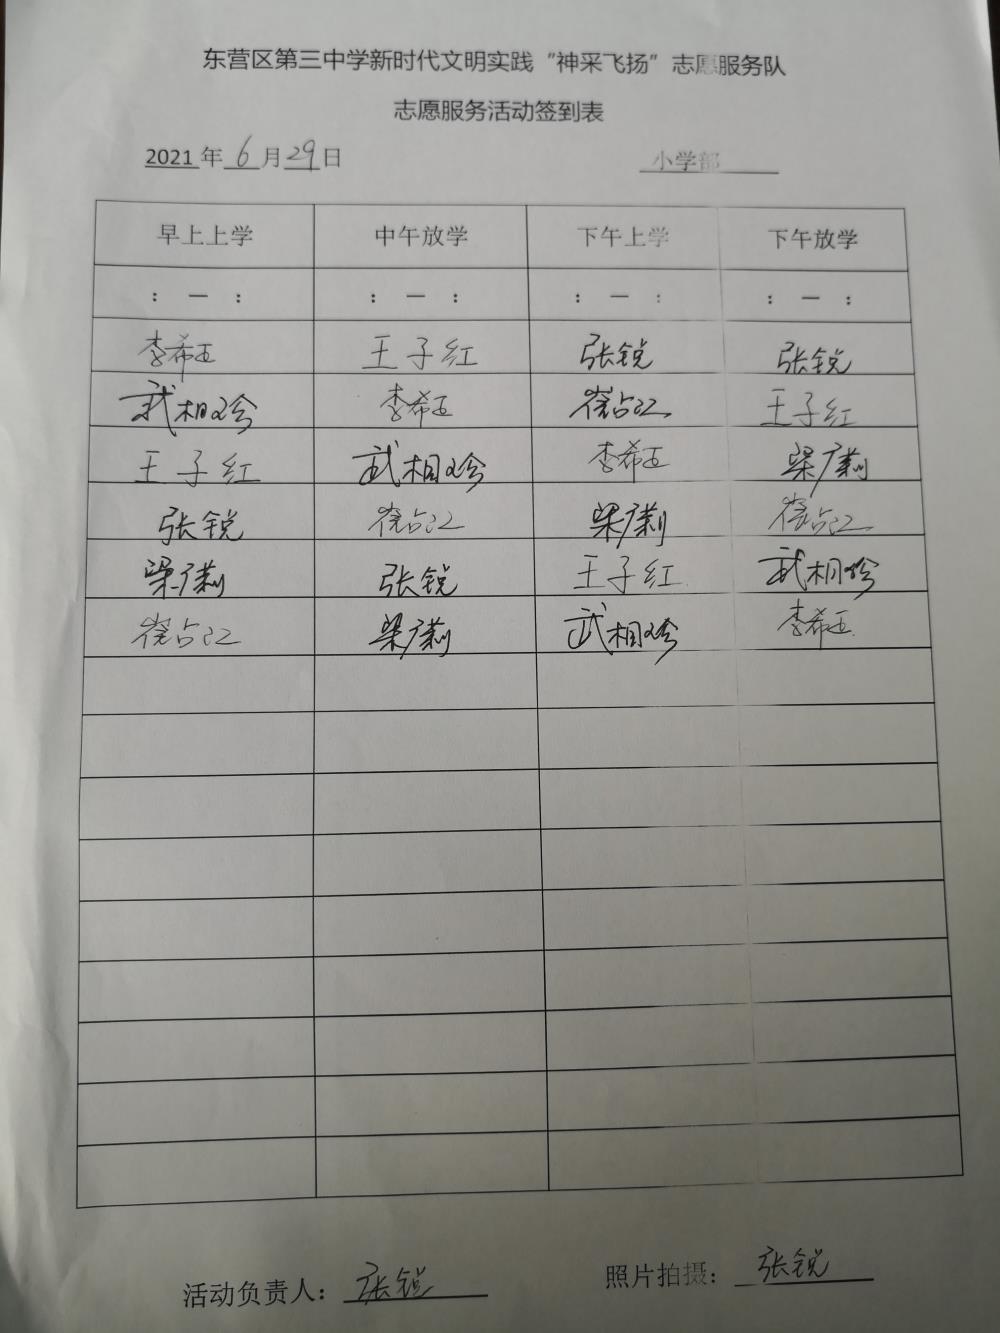 东营区第三中学新时代文明实践“神采飞扬”志愿服务队
志愿服务活动签到表
2021 年 6 月 29 日 小学部
早上上学 中午放学 下午上学 下午放学
： — ： ： — ： ： — ： ： — ：
李希玉 王子红 张锐 张锐
武相珍 李希玉 崔占江 王子红
王子红 武相珍 李希玉 梁广莉
张锐 崔占江 梁广莉 崔占江
梁广莉 张锐 王子红 武相珍
崔占江 梁广莉 武相珍 李希玉
活动负责人： 张锐 照片拍摄： 张锐